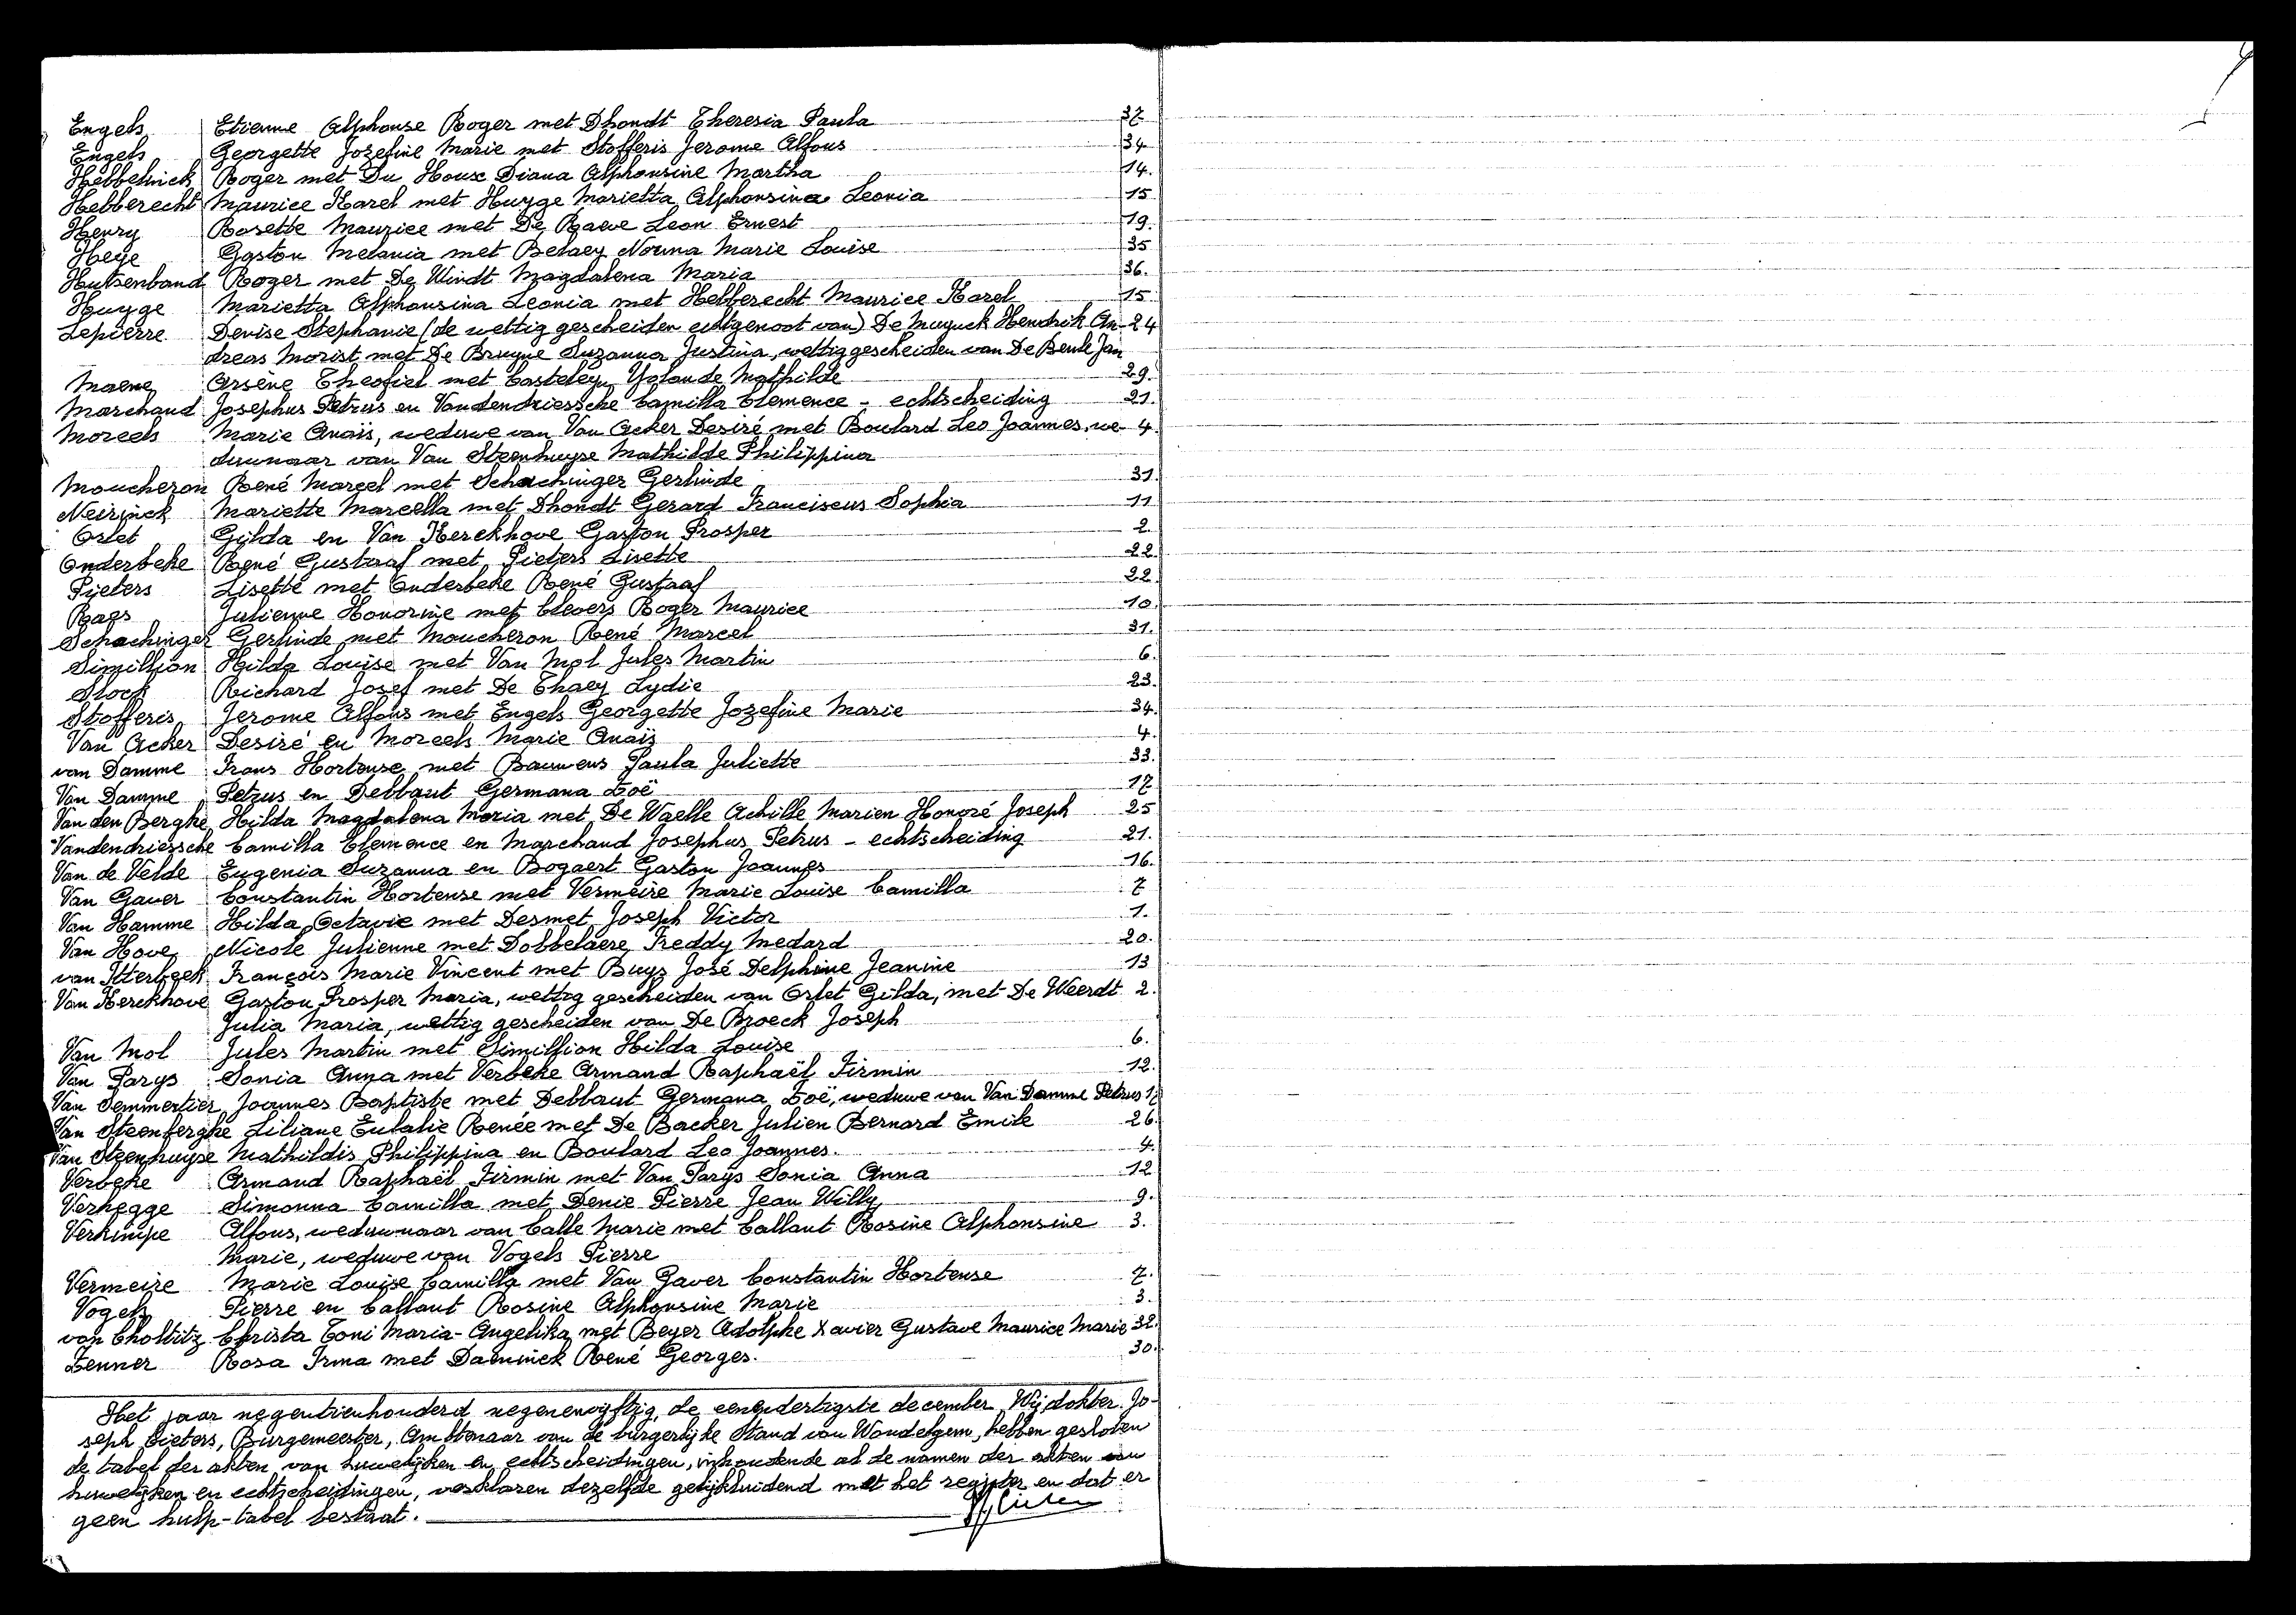 Engels Etienne Alphonse Roger met Dhondt Theresia Paula 37.
Engels Georgette Jozefine Marie met Stofferis Jerome Alfons 34.
Hebbelinck Roger met Du Houx Diana Alphonsine Martha 14.
Hebberecht Maurice Karel met Huyge Marietta Alphonsina Leonia 15
Henry Rosette Mauricee met De Raeve Leon Ernest 19.
Heye Gaston Melania met Belaey Norma Marie Louise 35
Hutsenband Roger met De Windt Magdalena Maria 36.
Huyge Marietta Alphonsina Leonia met Hebberecht Maurice Karel 15.
Lepierre Denise Stephanie (de wettig gescheiden echtgenoot van) De Muynck Hendrik An- 24
dreas Morist met De Bruyne Suzanna Justina, wettig gescheiden van De Beule Jan
Maene Arsène Theofiel met Casteleyn Yolande Mathilde 29.
Marchand Josephus Petrus en Vandendriessche Camilla Clemence - echtscheiding 21.
Moreels Marie Anaïs, weduwe van Van Acker Desiré met Boulard Leo Joannes, we- 4.
duwnaar van Van Steenhuyse Mathilde Philippina
Moucheron René Marcel met Schachinger Gerlinde 31.
Neirinck Mariette Marcella met Dhondt Gerard Franciscus Sophia 11
Orlet Gilda en Van Kerckhove Gaston Prosper 2.
Onderbeke René Gustaaf met Pieters Lisette 22.
Pieters Lisette met Onderbeke René Gustaaf 22.
Raes Julienne Honorine met Clevers Roger Maurice 10.
Schachinger Gerlinde met Moucheron René Marcel 31.
Simillion Hilda Louise met Van Mol Jules Martin 6.
Stock Richard Josef met De Thaey Lydie 23.
Stofferis Jerome Alfons met Engels Georgette Jozefine Marie 34.
Van Acker Desiré en Moreels Marie Anaïs 4.
van Damme Frans Hortense met Bauwens Paula Juliette 33.
Van Damme Petrus en Debbaut Germana Zoë 17
Van den Berghe Hilda Magdalena Maria met De Waelle Achille Marien Honoré Joseph 25
Vandendriessche Camilla Clemence en Marchand Josephus Petrus - echtscheiding 21.
Van de Velde Eugenia Suzanna en Bogaert Gaston Joannes 16.
Van Gaver Constantin Hortense met Vermeire Marie Louise Camilla 7
Van Hamme Hilda Octavie met Desmet Joseph Victor 1.
Van Hove Nicole Julienne met Dobbelaere Freddy Medard 20.
van Itterbeek François Marie Vincent met Buys José Delphine Jeanine 13
Van Kerckhove Gaston Prosper Maria, wettig gescheiden van Orlet Gilda, met De Weerdt 2.
Julia Maria, wettig gescheiden van De Broeck Joseph
Van Mol Jules Martin met Simillion Hilda Louise 6.
Van Parys Sonia Anna met Verbeke Armand Raphaël Firmin 12.
Van Semmertier Joannes Baptiste met Debbaut Germana Zoë, weduwe van Van Damme Petrus 17
Van Steenberghe Liliane Eulalie Renée met De Backer Julien Bernard Emile 26.
Van Steenhuyse Mathildis Philippina en Boulard Leo Joannes. 4.
Verbeke Armand Raphaël Firmin met Van Parys Sonia Anna 12
Verhegge Simonna Camilla met Denie Pierre Jean Willy 9.
Verkimpe Alfons, weduwnaar van Calle Marie met Callant Rosine Alphonsine 3.
Marie, weduwe van Vogels Pierre
Vermeire Marie Louise Camilla met Van Gaver Constantin Hortense 7.
Vogels Pierre en Callant Rosine Alphonsine Marie 3.
von Choltitz Christa Toni Maria-Angelika met Beyer Adolphe Xavier Gustave Maurice Marie 32.
Zenner Rosa Irma met Daeninck René Georges. 30.
Het jaar negentienhonderd negenenvijftig, de eenendertigste december, Wij dokter Jo-
seph Pieters, Burgemeester, Ambtenaar van de burgerlijke Stand van Wondelgem, hebben gesloten
de tabel der akten van huwelijken en echtscheidingen, inhoudende al de namen der akten van
huwelijken en echtscheidingen, verklaren dezelfde gelijkluidend met het register en dat er
geen hulp-tabel bestaat.